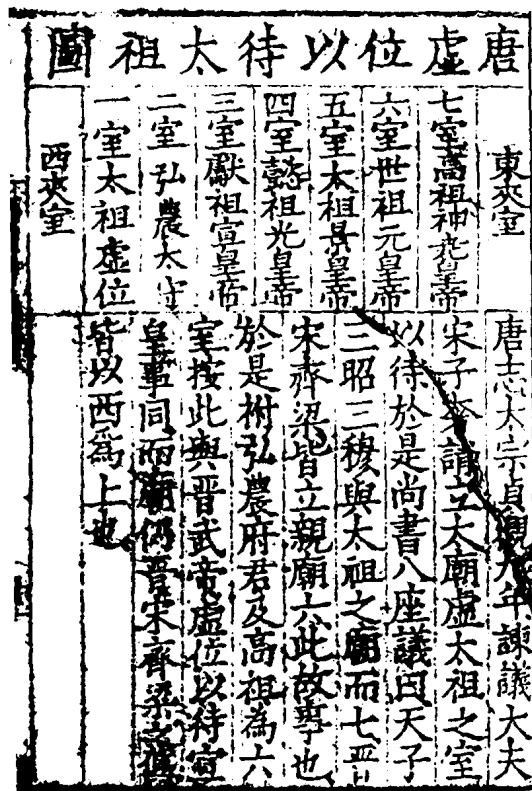 唐虛位以待太祖圖
東夾室
七室高祖神堯皇帝
六室世祖元皇帝
五室太祖景皇帝
四室懿祖光皇帝
三室獻祖宣皇帝
二室弘農太守
一室太祖虛位
西夾室
唐志太宗貞觀九年諫議大夫
宋子奢請立太廟虛太祖之室
以待於是尚書八座議曰天子
三昭三穆與太祖之廟而七晋
宋齊梁皆立親廟六此故事也
於是祔弘農府君及高祖為六
室按此與晋武帝虛位以待宣
皇事同而廟仍晋宋齊梁之舊
皆以西爲上也